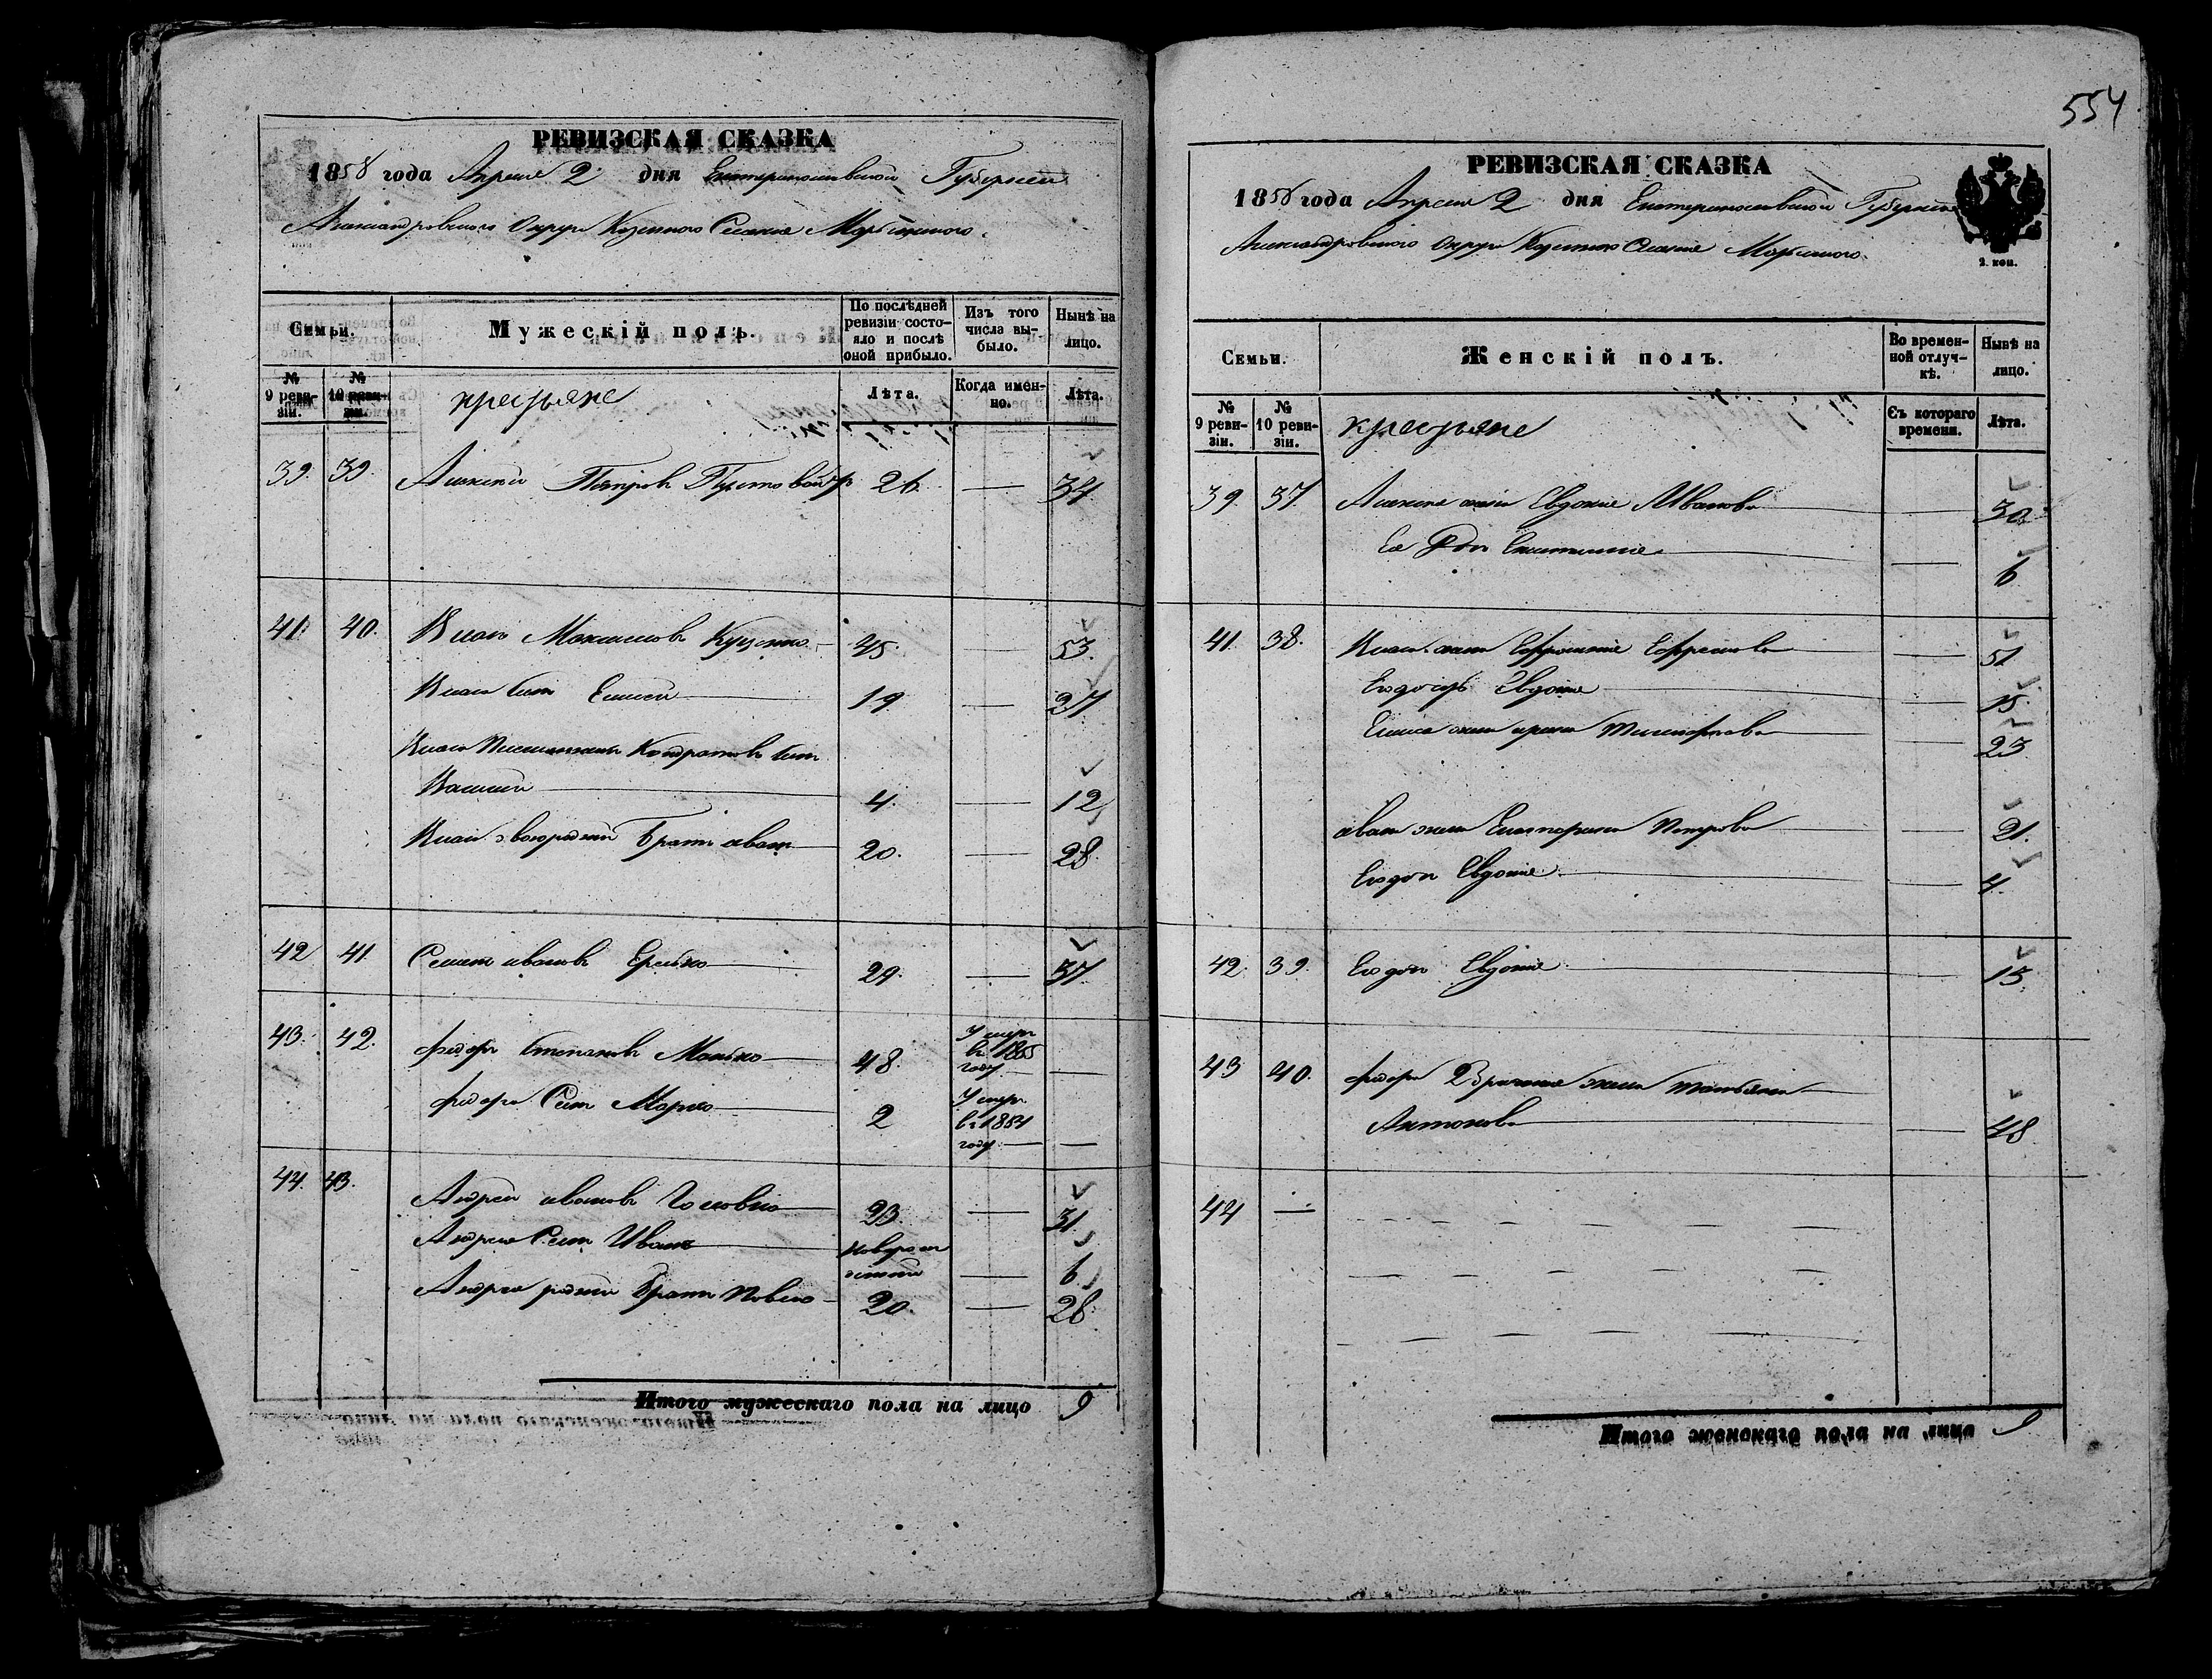 554
РЕВИЗСКАЯ СКАЗКА
1858 года Апреля 2 дня Екатеринославской Губернии
Александровского Округа Казенного Селения Марьинского.
Семьи.
Мужескій полъ.
По послѣдней ревизіи состояло и послѣ оной прибыло.
Изъ того числа выбыло.
Нынѣ на лицо.
№ 9 ревизіи.
№ 10 ревизіи.
крестьяне
Лѣта.
Когда именно.
Лѣта.
39. 39 Алексей Петров 26 — 34
41. 40. Влас Максимов Куценко 45. — 53.
Власа сын Елисей 19 — 27
Власа Племянник Кондратов сын
Василий 4. — 12
Власа двоюродный Брат иван 20. — 28
42 41 Семен иванов 29. — 37
43. 42. федор Степанов Манько 48. Умер в 1855 году —
федора Сын Марко 2 Умер в 1854 году —
44. 43. Андрей иванов Головко 23. — 31.
Андрея Сын Иванъ — 6
Андрея родной Брат Павел 20. — 28
Итого мужескаго пола на лицо 9
РЕВИЗСКАЯ СКАЗКА
1858 года Апреля 2 дня Екатеринославской Губернии
Александровского Округа Казенного Селения Марьинского.
2. коп.
Семьи.
Женскій полъ.
Во временной отлучкѣ.
Нынѣ на лицо.
№ 9 ревизіи.
№ 10 ревизіи.
крестьяне
Съ котораго времени.
Лѣта.
39. 37. Алексея жена Евдокия Иванова — 30
Ея Дочь — 6
41. 38. Власа жена Ефросиния Ефремова — 51
Ея дочь Евдокия — 15.
Елисея жена ирина — 23
ивана жена Екатерина Петрова — 21.
Ея дочь Евдокия — 4.
42. 39. Ея дочь Евдокия — 15.
43 40. федора 2 Брачная жена татьяна
Антонова — 48
44 —
Итого женскаго пола на лицо 9